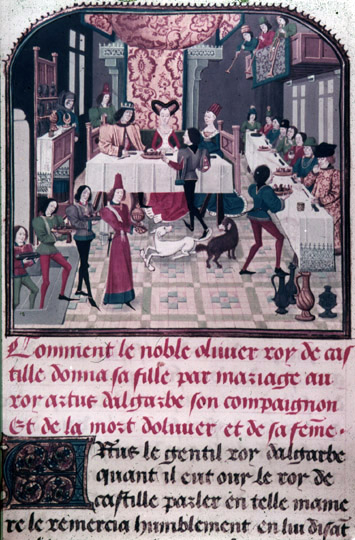 Comment le noble oliuier roy de cas
tille donna sa fille par mariage au
roy artus dalgarbe son compaignon
Et de la mort doliuier et de sa feme.
ARtus le gentil roy dalgarbe
quant il eut ouy le roy de
castille parler en telle manie
re le remercia humblement en lui disãt